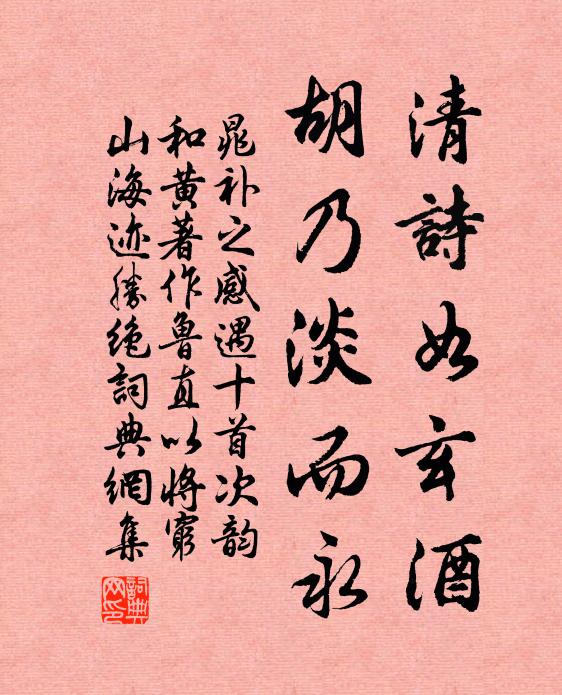 清詩如玄酒
胡乃淡而永
晁补之感遇十首次韵
和黄著作鲁直以将窮
山海迹勝絶詞典網集
詞典
网印